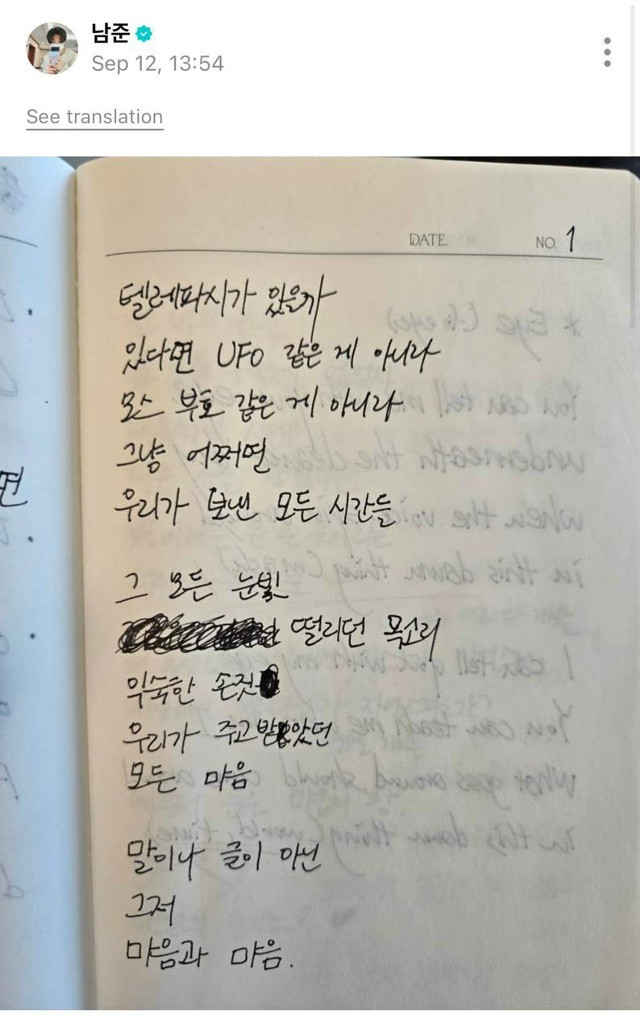 남준
Sep 12, 13:54
See translation
DATE NO. 1
텔레파시가 있을까
있다면 UFO 같은 게 아니라
모스 부호 같은 게 아니라
그냥 어쩌면
우리가 보낸 모든 시간들
그 모든 눈빛
떨리던 목소리
익숙한 손짓
우리가 주고받았던
모든 마음
말이나 글이 아닌
그저
마음과 마음.
면